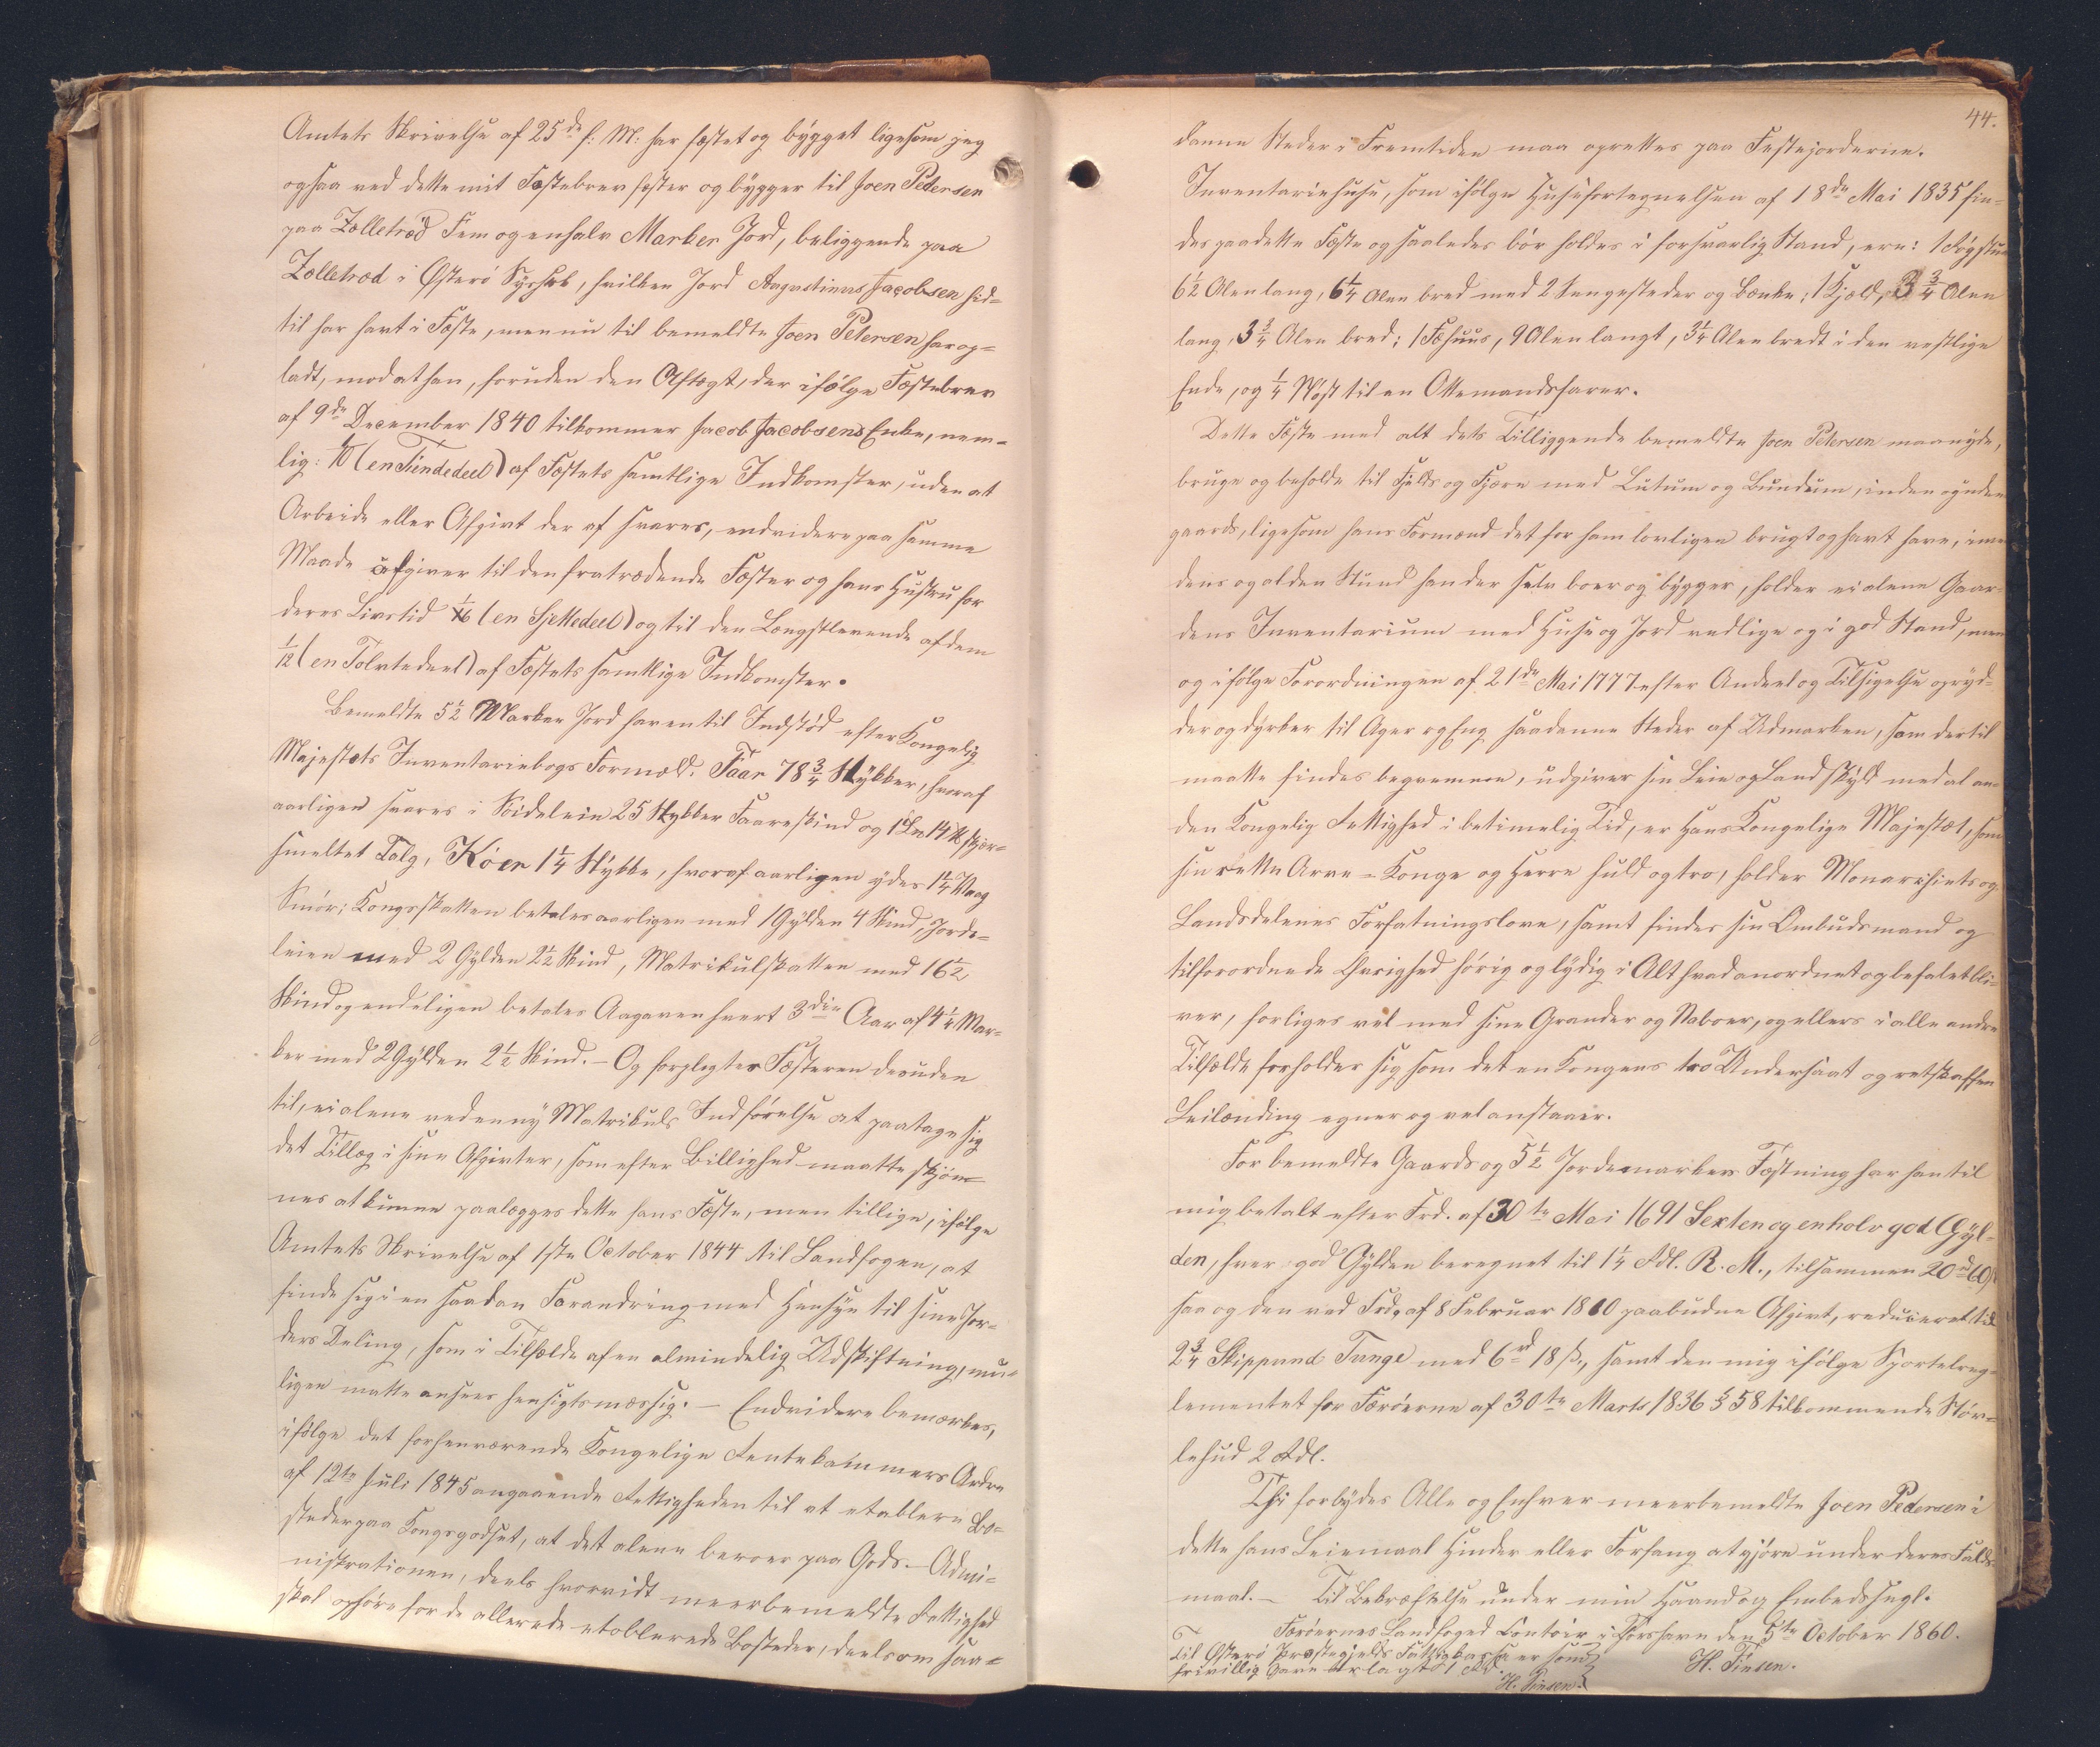 Amtets Skrivelse af 25de f: M: har fæstet og bygget ligesom jeg
ogsaa ved dette mit Fæstebrev fæster og bygger til Joen Petersen
paa Zelletræd Fem og en halv Marker Jord, beliggende paa
Zelletræd i Østerø Syssel, hvilken Jord Augustinus Jacobsen hid-
til har havt i Fæste, men nu til bemeldte Joen Petersen har op-
ladt, mod at han, foruden den Aftægt, der ifølge Fæstebrev
af 9de December 1840 tilkommer Jacob Jacobsens Enke, nem-
lig: 1/10 (en Tiendedeel) af Fæstets samtlige Indkomster, uden at
Arbeide eller Afgivt der af svares, endvidere paa samme
Maade afgiver til den fratrædende Fæster og hans Hustru for
deres Livstid 1/6 (en Sjettedeel) og til den Længstlevende af dem
1/12 (en Tolvtedeel) af Fæstets samtlige Indkomster.
Bemeldte 5 1/2 Marker Jord haver til Indstød efter Kongelig
Majestæts Inventariebogs Formæld: Faar 78 3/4 Stykker, hvoraf
aarligen svares i Leie 25 Stykker Faareskind og 1 14 skjær-
smeltet Talg, Køer 1 1/4 Stykke, hvoraf aarligen ydes 1 1/4 Vaag
Smør; Kongsskatten betales aarligen med 1 Gylden 4 Skind, Jorde-
leien med 2 Gylden 2 1/2 Skind, Matrikulskatten med 16 1/2
Skind og endeligen betales hvert 3die Aar af 4 1/4 Mar-
ker med 2 Gylden 2 1/2 Skind. – Og forpligtes Fæsteren desuden
til, ei alene ved en ny Matrikuls Indførelse at paatage sig
det Tillæg i sine Afgivter, som efter Billighed maatte skjøn-
nes at kunne paalægges dette hans Fæste, men tillige, ifølge
Amtets Skrivelse af 1ste October 1844 til Landfogen, at
finde sig i en saadan Forandring med Hensyn til sine Jor-
ders Deling, som i Tilfælde af en almindelig Udskiftning, mu-
ligen maatte ansees hensigtsmæssig. – Endvidere bemærkes,
ifølge det forhenværende Kongelige Rentekammers Ordre
af 12te Juli 1845 angaaende Rettigheden til at etablere Bo-
steder paa Kongsgodset, at det alene beroer paa Gods-Admi-
nistrationen, deels hvorvidt meerbemeldte Rettighed
skal ophøre for de allerede etablerede Bosteder, deels om saa-
44.
danne Steder i Fremtiden maa oprettes paa Festejorderne.
Inventariehuse, som ifølge Husefortegnelsen af 18de Mai 1835 fin-
des paa dette Fæste og saaledes bør holdes i forsvarlig Stand, ere: 1 Røgstue
6 1/2 Alen lang, 6 1/4 Alen bred med 2 Sengesteder og Bænke; 1 Kjeld, 3 3/4 Alen
lang, 3 3/4 Alen bred; 1 Fæhuus, 9 Alen langt, 3 1/4 Alen bredt i den vestlige
Ende, og 1/4 Nøst til en Ottemandsfarer.
Dette Fæste med alt dets Tilliggende bemeldte Joen Petersen maa nyde,
bruge og beholde til Fjelds og Fjære med Lutum og Lundum, inden og uden
gaards, ligesom hans Formænd det for ham lovligen brugt og havt have, imens
dens og alden Stund han der selv boer og bygger, holder ei alene Gaar-
dens Inventarium med Huse og Jord vedlige og i god Stand, men
og ifølge Forordningen af 21de Mai 1777 efter Andeel og Tilsigelse opryd-
der og dyrker til Ager og Eng saadanne Steder af Udmarken, som dertil
maatte findes beqvemme, udgiver sin Leie og Landskyld med al an-
den Kongelig Rettighed i betimelig Tid, er Hans Kongelige Majestæt, som
sin rette Arve-Konge og Herre huld og tro, holder Monarchiets og
Landsdelenes Forfatningslove, samt findes sin Ombudsmand og
tilforordnede Øvrighed hørig og lydig i Alt hvad anordnet og befalet bli-
ver, forliges vel med sine Grander og Naboer, og ellers i alle andre
Tilfælde forholder sig som det en Kongens tro Undersaat og retskaffen
Leilænding egner og vel anstaaer.
For bemeldte Gaards og 5 1/2 Jordemarkers Fæstning har han til
mig betalt efter Frd. af 30te Mai 1691 Sexten og en halv god Gyl-
den, hver god Gylden beregnet til 1 1/4 Rdl. R. M., tilsammen 20 rd 60 ß,
saa og den ved Frd. af 8 Februar 1810 paabudne Afgivt, reduceret til
2 3/4 Skippund Tunge med 6 rd 18 ß., samt den mig ifølge Sportelreg-
lementet for Færøerne af 30te Marts 1836 § 58 tilkommende Stør-
lehud 2 Rdl.
Thi forbydes Alle og Enhver meerbemeldte Joen Pedersen i
dette hans Leiemaal Hinder eller Forfang at gjøre under deres Falds-
maal. – Til Bekræftelse under min Haand og Embedssegl.
Færøernes Landfoged Contoir i Thorshavn den 5te October 1860.
H. Finsen.
Til Østerø Præstegjelds Fattigkasse er som
frivillig Gave erlagt 1 Rd.
H. Finsen.